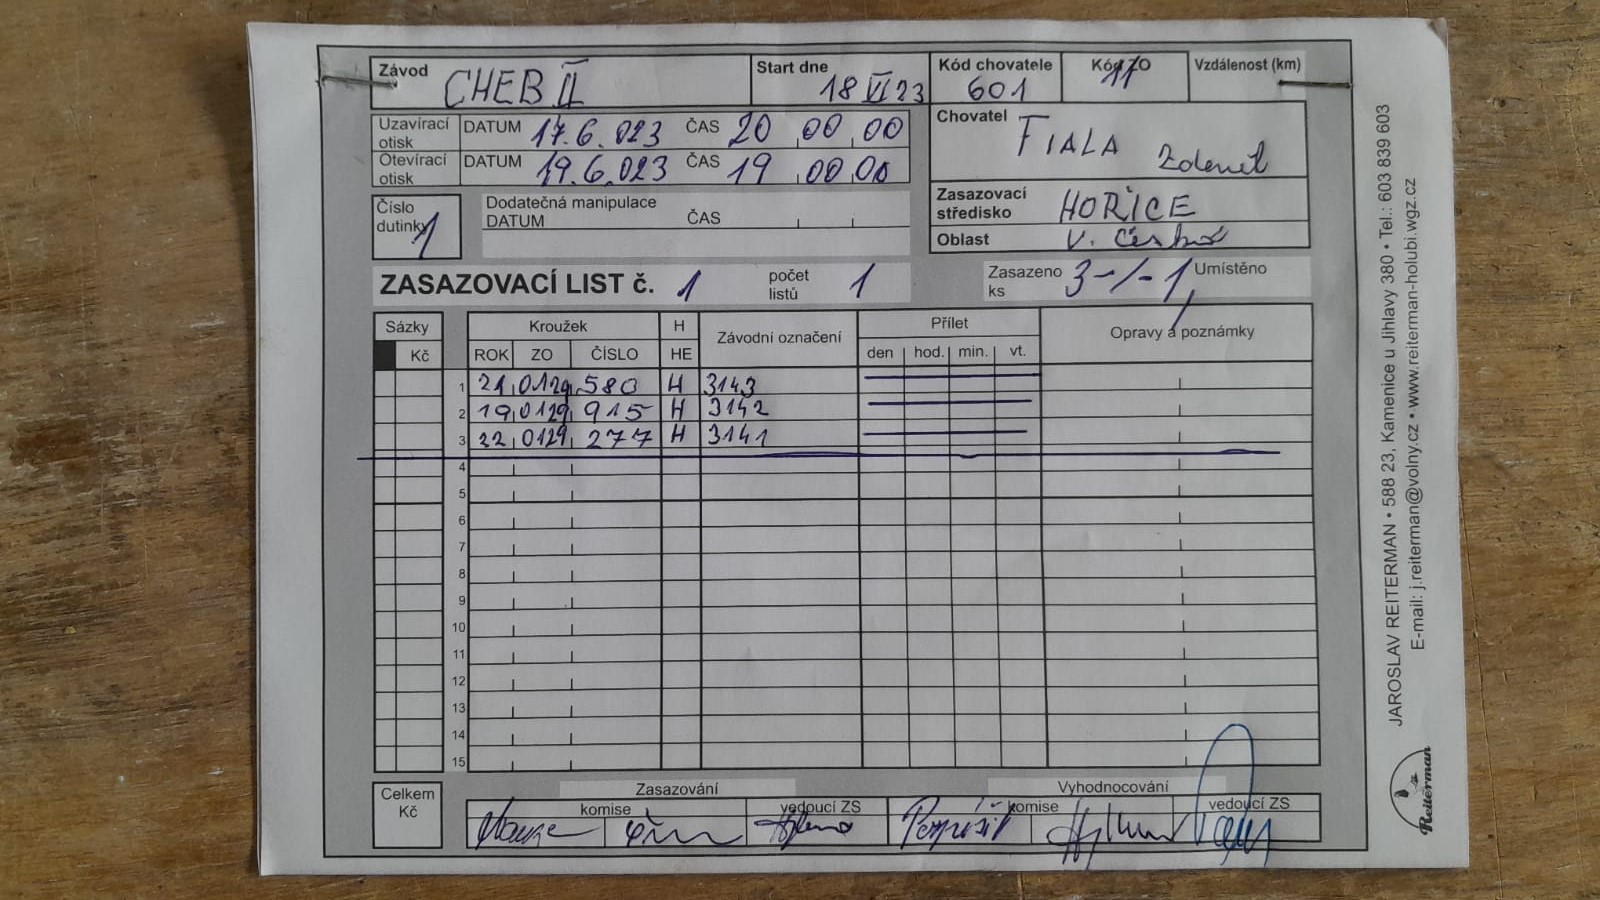 Závod CHEB II Start dne 18 VI 23 Kód chovatele 601 Kód ZO 11 Vzdálenost (km)
Uzavírací otisk DATUM 17.6.023 ČAS 20 00 00
Otevírací otisk DATUM 19.6.023 ČAS 19 00 00
Chovatel FIALA Zdeněk
Číslo dutinky 1
Dodatečná manipulace
DATUM ČAS
Zasazovací středisko HOŘICE
Oblast V. Česká
ZASAZOVACÍ LIST č. 1 počet listů 1 Zasazeno ks 3-/-1 Umístěno
Sázky Kroužek H Závodní označení Přílet Opravy a poznámky
Kč ROK ZO ČÍSLO HE den hod. min. vt.
1 21 0129 580 H 3143
2 19 0129 915 H 3142
3 22 0129 277 H 3141
4
5
6
7
8
9
10
11
12
13
14
15
Celkem Kč Zasazování Vyhodnocování
komise vedoucí ZS komise vedoucí ZS
JAROSLAV REITERMAN • 588 23, Kamenice u Jihlavy 380 • Tel.: 603 839 603
E-mail: j.reiterman@volny.cz • www.reiterman-holubi.wgz.cz
Reiterman